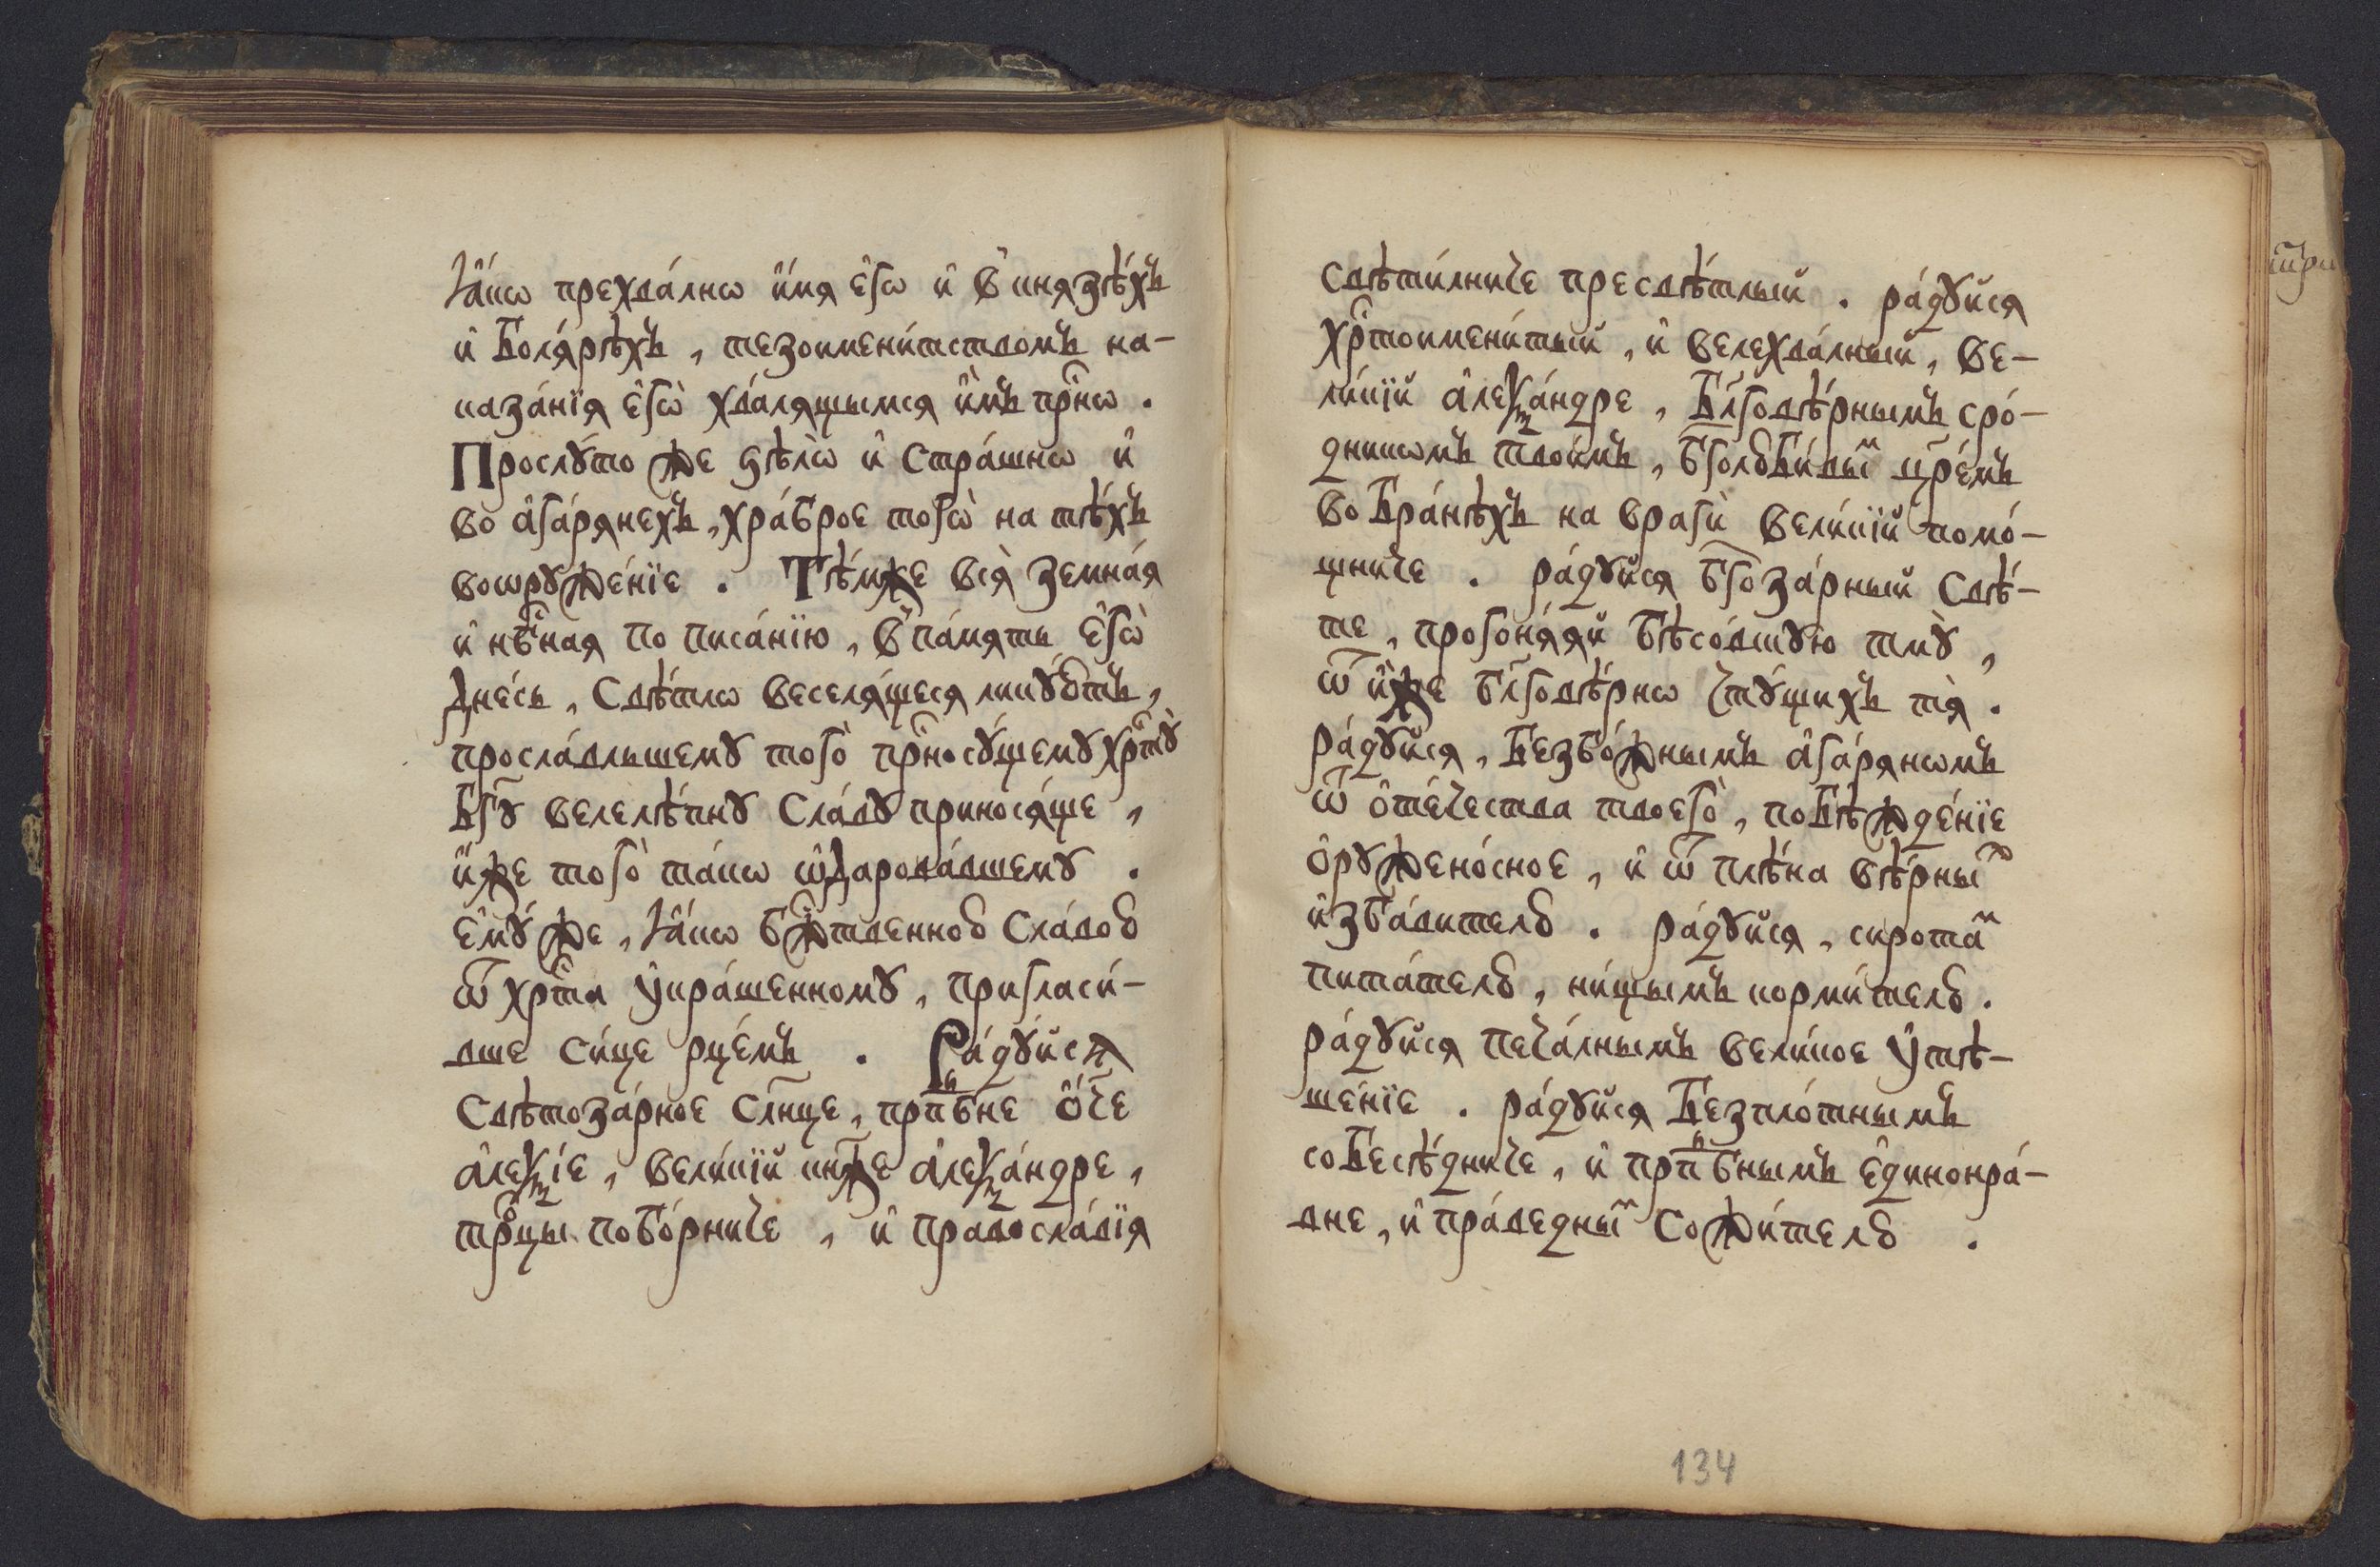 Ꙗ҆́кѡ прехва́лнѡ и҆́мѧ є҆гѡ̀ и҆ в кнѧзѣ́хъ
и҆ болѧ́рѣхъ, тезоимени́тствомъ на-
каза́нїѧ є҆гѡ̀ хвалѧщымсѧ и҆́мъ прⷭ҇нѡ.
Прослꙋ́то же ѕѣлѡ̀ и҆ стра́шнѡ и҆
во а҆га́рѧнехъ, хра́брое тогѡ̀ на тѣ́хъ
воѡрꙋже́нїе. Тѣ́мже всѧ̀ земна́ѧ
и҆ нбⷭ҇наѧ по писа́нїю, в па́мѧть є҆гѡ̀
дне́сь, свѣ́тлѡ веселѧ́щесѧ ликꙋ́ютъ,
просла́вльшемꙋ того̀ прⷭ҇носꙋ́щемꙋ хрⷭ҇тꙋ̀
бг҃ꙋ велелѣ́пнꙋ сла́вꙋ приносѧ́ще,
и҆́же того̀ та́кѡ ѡ҆дарова́вшемꙋ.
є҆мꙋ́же, ꙗ҆́кѡ бж҃твенною сла́вою
ѿ хрⷭ҇та̀ ᲂу҆кра́шенномꙋ, пригласи́-
вше си́це рце́мъ. Ра́дꙋйсѧ
свѣтоза́рное сл҃нце, прпⷣбне ѻ҆́ч҃е
а҆леѯі́е, вели́кїй кнѧ́же а҆леѯа́ндре,
трⷪ҇цы побо́рниче, и҆ правосла́вїѧ
свѣти́лниче пресвѣ́тлый. ра́дꙋйсѧ
хрⷭ҇тоимени́тый, и҆ велехва́лный, ве-
ли́кїй а҆леѯа́ндре, бл҃говѣ́рнымъ сро́-
дникѡмъ твои́мъ, бг҃олюби́выⷨ цр҃е́мъ
во бра́нѣхъ на врагѝ вели́кїй помо́-
щниче. ра́дꙋйсѧ бг҃оза́рный свѣ́-
те, прогонѧ́ѧй бѣсо́вскꙋю тмꙋ̀,
ѿ и҆́же бл҃говѣ́рнѡ чтꙋ́щихъ тѧ̀.
ра́дꙋйсѧ, безбо́жнымъ а҆га́рѧнѡмъ
ѿ ѻ҆те́чества твоегѡ̀, побѣжде́нїе
ѻ҆рꙋжено́сное, и҆ ѿ плѣ́на вѣ́рныⷯ
и҆зба́вителю. ра́дꙋйсѧ, сирота́ⷨ
пита́телю, ни́щымъ корми́телю.
ра́дꙋйсѧ печа́лнымъ вели́кое ᲂу҆тѣ-
ше́нїе. ра́дꙋйсѧ безпло́тнымъ
собесѣ́дниче, и҆ прпⷣбнымъ є҆динонра́-
вне, и҆ пра́ведныⷨ сожи́телю.
134